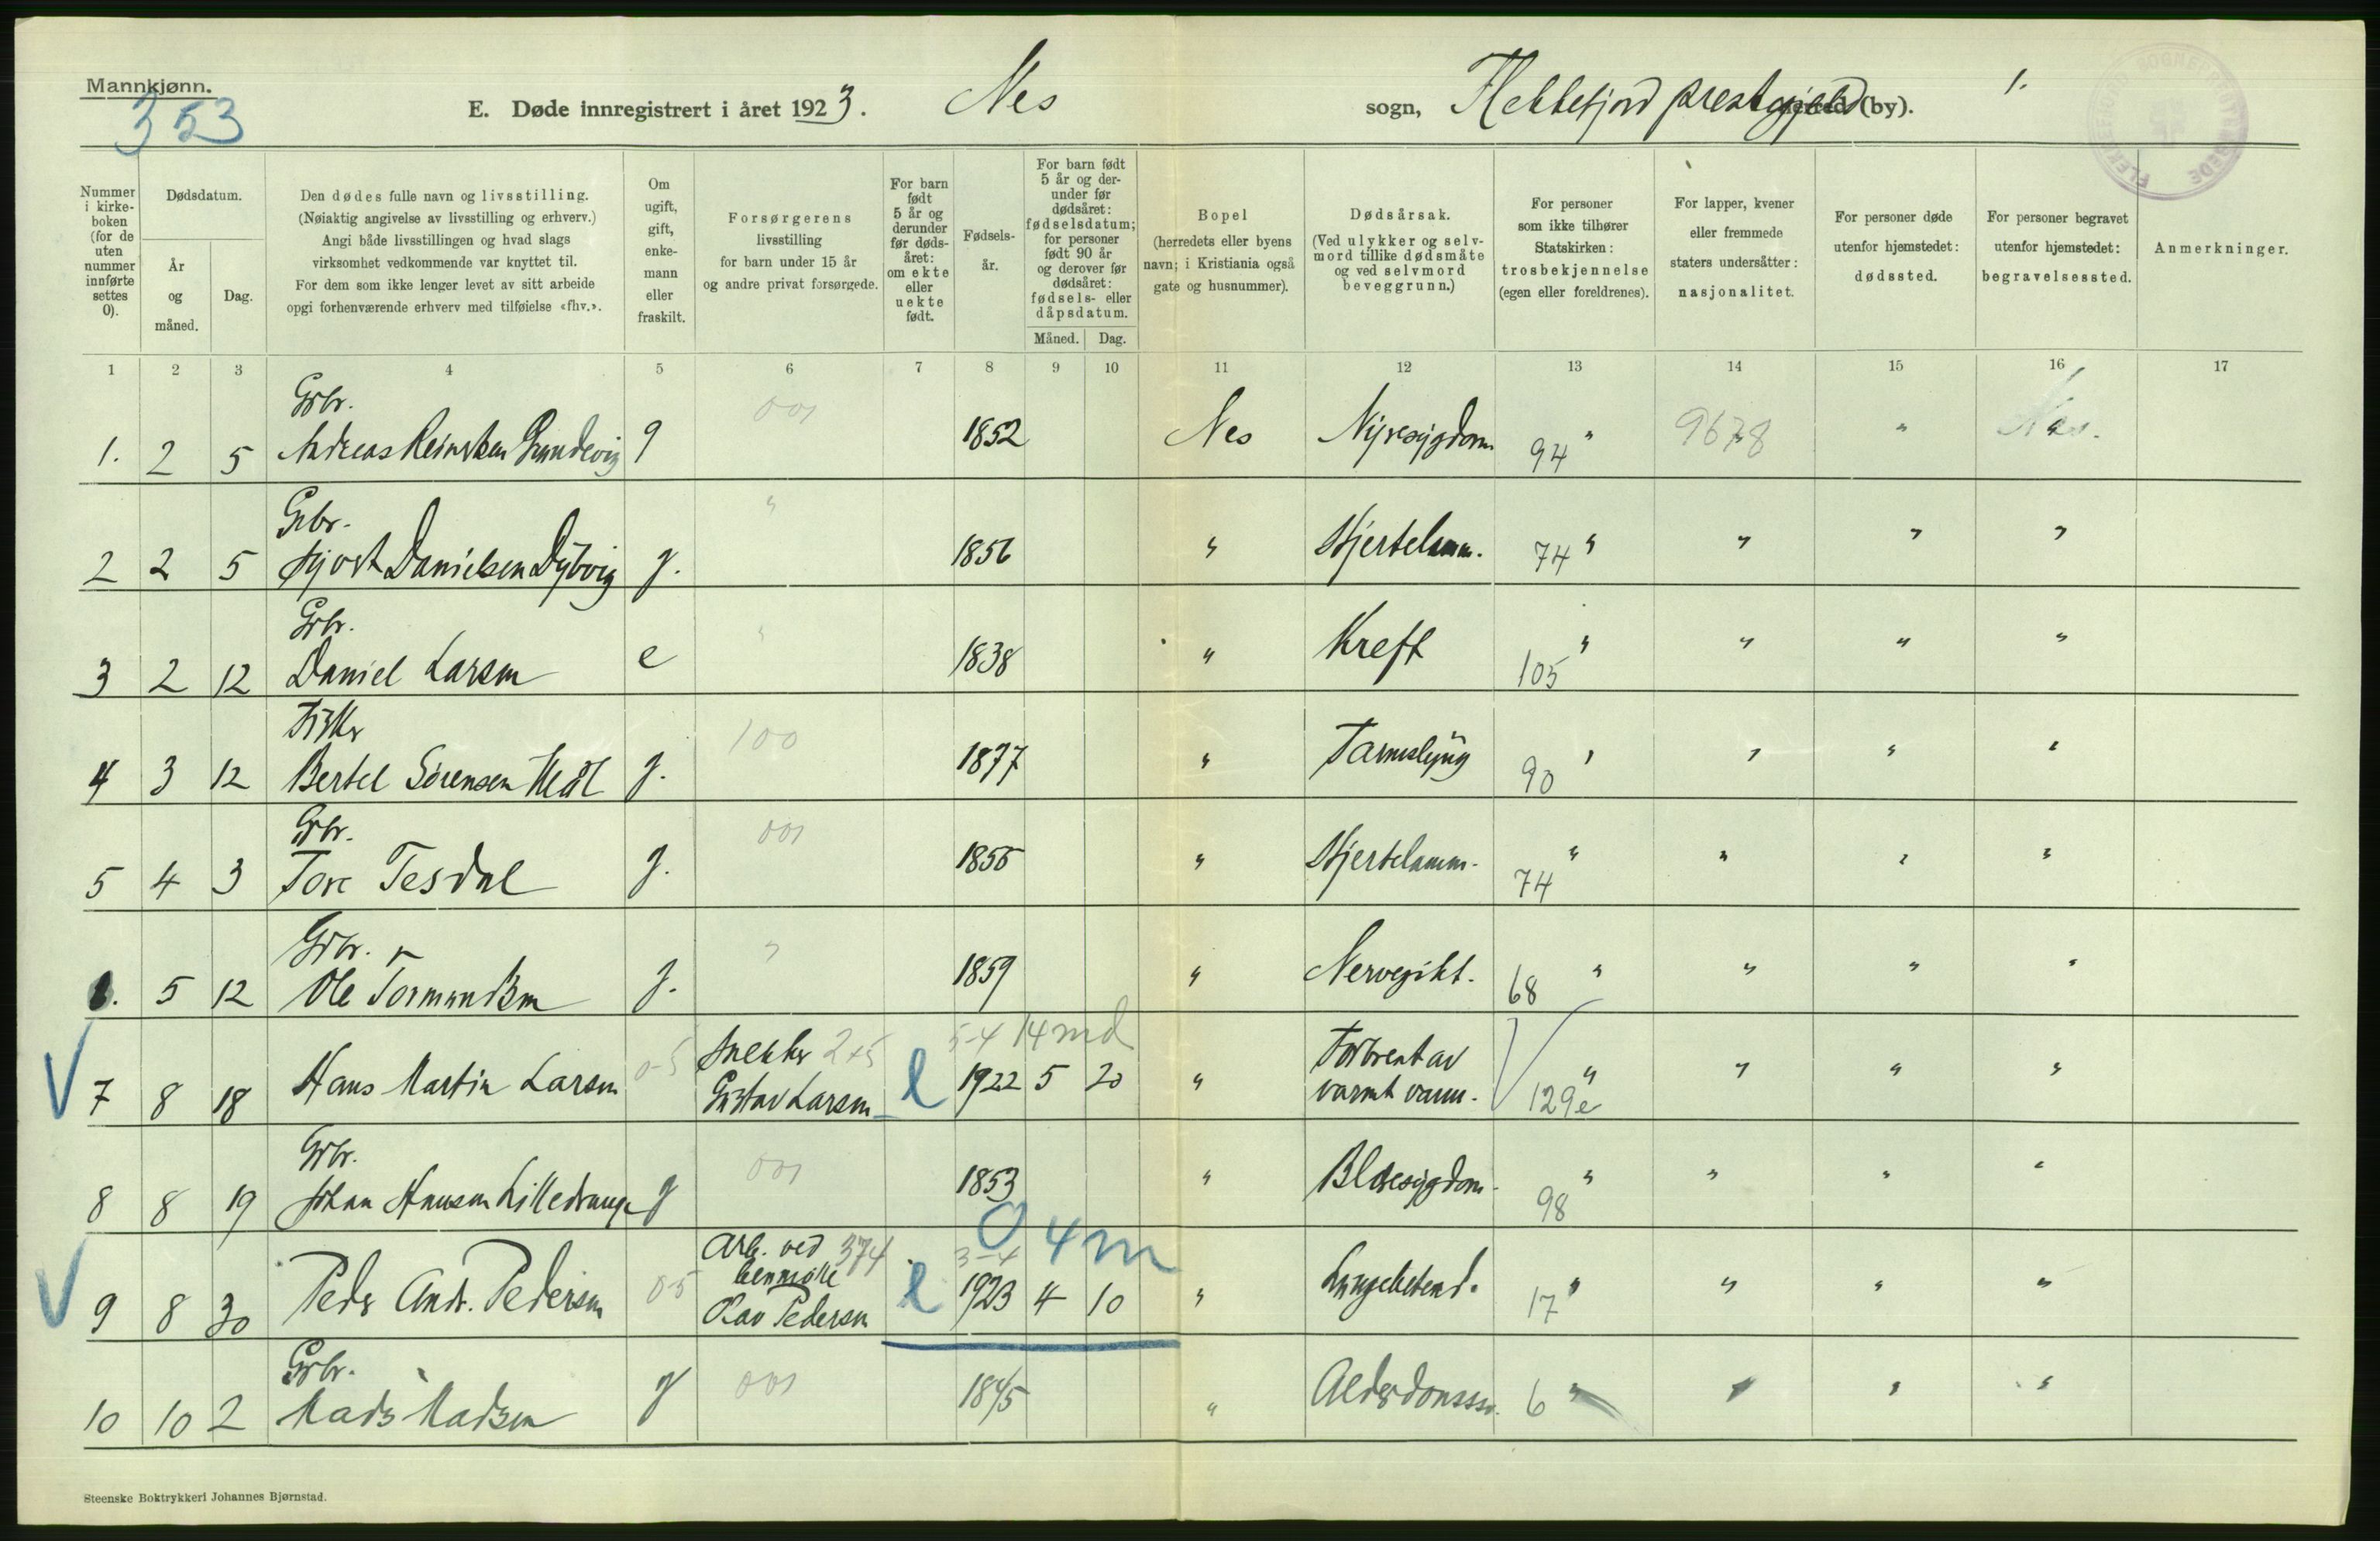 Mannkjønn.
353
E. Døde innregistrert i året 1923. Nes sogn, Flekkefjord prestegjeld herred (by). 1.
Nummer i kirkeboken (for de uten nummer innførte settes 0).
Dødsdatum.
År og måned.
Dag.
Den dødes fulle navn og livsstilling.
(Nøiaktig angivelse av livsstilling og erhverv.)
Angi både livsstillingen og hvad slags
virksomhet vedkommende var knyttet til.
For dem som ikke lenger levet av sitt arbeide
opgi forhenværende erhverv med tilføielse «fhv.».
Om ugift, gift, enkemann eller fraskilt.
Forsørgerens
livsstilling
for barn under 15 år
og andre privat forsørgede.
For barn født 5 år og derunder før dødsåret: om ekte eller uekte født.
Fødselsår.
For barn født 5 år og derunder før dødsåret: fødselsdatum; for personer født 90 år og derover før dødsåret: fødsels- eller dåpsdatum.
Måned. Dag.
Bopel
(herredets eller byens
navn; i Kristiania også
gate og husnummer).
Dødsårsak.
(Ved ulykker og selvmord tillike dødsmåte
og ved selvmord
beveggrunn.)
For personer
som ikke tilhører
Statskirken:
trosbekjennelse
(egen eller foreldrenes).
For lapper, kvener
eller fremmede
staters undersåtter:
nasjonalitet.
For personer døde
utenfor hjemstedet:
dødssted.
For personer begravet
utenfor hjemstedet:
begravelsessted.
Anmerkninger.
1 2 3 4 5 6 7 8 9 10 11 12 13 14 15 16 17
Grbr. 001
1. 2 5 Andreas Reinertsen Grundevig g 1852 Nes Nyresygdom 94 " 9678 " Nes.
Grbr. "
2 2 5 Sjovt Danielsen Dybvig g. 1856 " Hjertelamm. 74 " " " "
Grbr. "
3 2 12 Daniel Larsen e 1838 " Kreft 105 " " " "
Fisker 100
4 3 12 Bertel Sørensen g. 1877 " Tarmslyng 90 " " " "
Grbr. 001
5 4 3 Tore Tesdal g. 1856 " Hjertelamm. 74 " " " "
Grbr. "
5 12 Ole Tormundsen g. 1859 " Nervegikt. 68 " " " "
Snekker 2+5 5-4 14 md Forbrent av
7 8 18 Hans Martin Larsen 0-5 Gustav Larsen l 1922 5 20 " varmt vann. 129e " " " "
Grbr. 001
8 8 19 Johan Hansen Lilledrange g 1853 " Blæresygdom 98 " " " "
Arb. ved 374 3-4 0 4m
benmølle
9 8 30 Peder Andr. Pedersen 0-5 Olav Pedersen l 1923 4 10 " Lungebetend. 17 " " " "
Grbr.
10 10 2 Mads Madsen g 001 1845 " 6 " " " "
Steenske Boktrykkeri Johannes Bjørnstad.